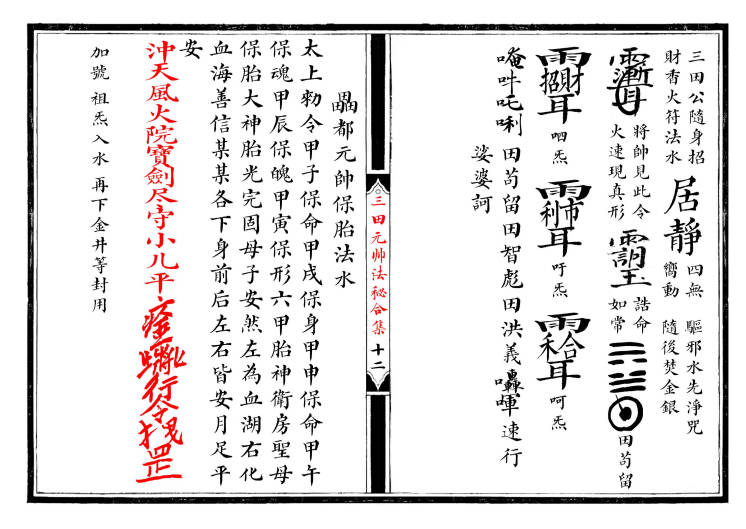 三田公隨身招
財香火符法水
將帥見此令
火速現真形
居靜
四無
嚮動
誥命
如常
驅邪水先淨咒
隨後焚金銀
田苟留
呬炁
吁炁
呵炁
唵吽吒唎
田苟留田智彪田洪義
速行
娑婆訶
三田元帅法秘合集 十二
元帥保胎法水
太上勅令甲子保命甲戌保身甲申保命甲午
保魂甲辰保魄甲寅保形六甲胎神衛房聖母
保胎大神胎光完固母子安然左為血湖右化
血海善信某某各下身前后左右皆安月足平
安
沖天風火院寶劍尽守小儿平
行令
罡
加號 祖炁入水 再下金井等封用